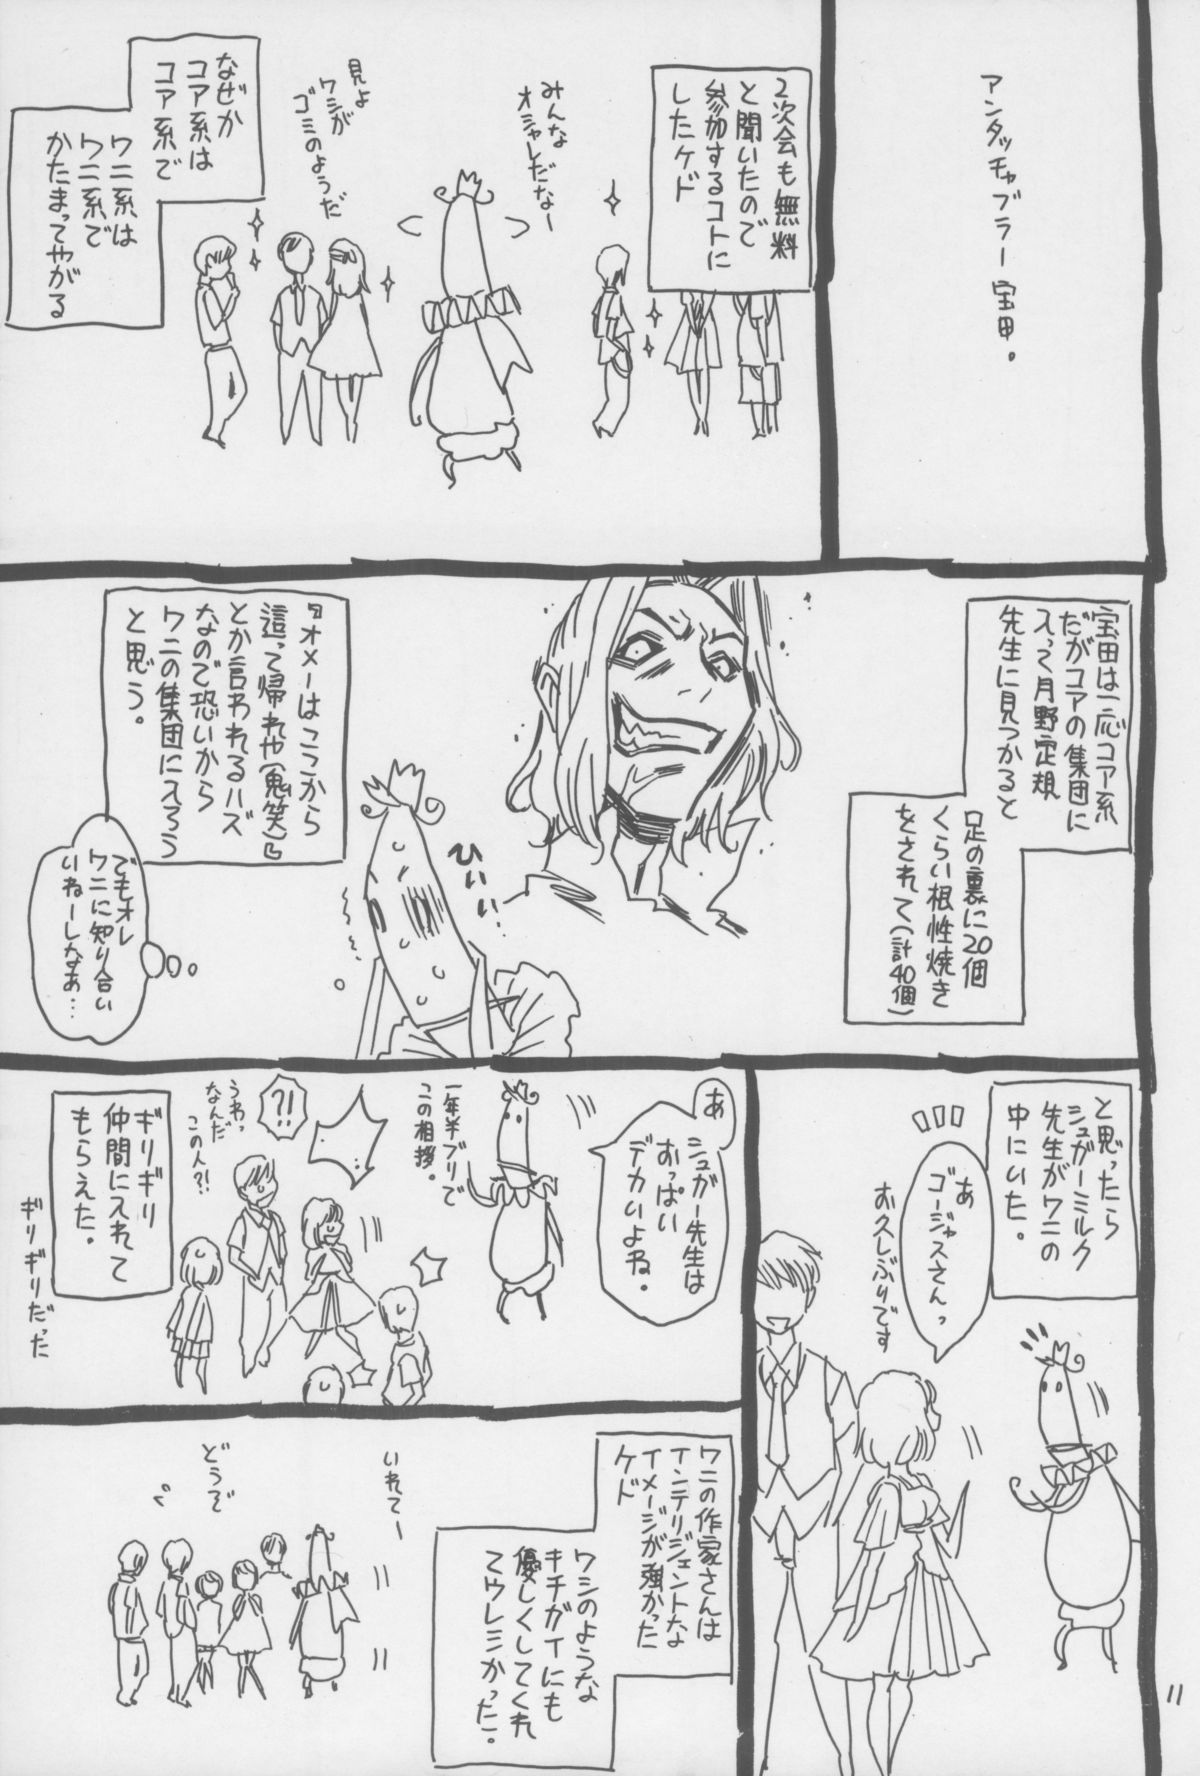 アンタッチャブラー宝田。
2次会も無料
と聞いたので
参加するコトに
したケド
みんな
オシャレだなー
見よ
ワシが
ゴミのようだ
なぜか
コア系は
コア系で
ワニ系は
ワニ系で
かたまってやがる
宝田は一応コア系
だがコアの集団に
入って月野定規
先生に見つかると
足の裏に20個
くらい根性焼き
をされて(計40個)
『オメーはここから
這って帰れや(鬼笑)』
とか言われるハズ
なので恐いから
ワニの集団に入ろう
と思う。
ひいぃ!
でもオレ
ワニに知り合い
いねーしなぁ…
と思ったら
シュガーミルク
先生がワニの
中にいた。
あ
ゴージャスさんっ
お久しぶりです
あ
シュガー先生は
おっぱい
デカいよね。
一年半ブリで
この相拶。
?!
うわっ
なんだ
この人?!
ギリギリ
仲間に入れて
もらえた。
ギリギリだった
ワニの作家さんは
インテリジェントな
イメージが強かった
ケド
ワシのような
キチガイにも
優しくしてくれ
てウレシかった。
いれてー
どうぞ
11